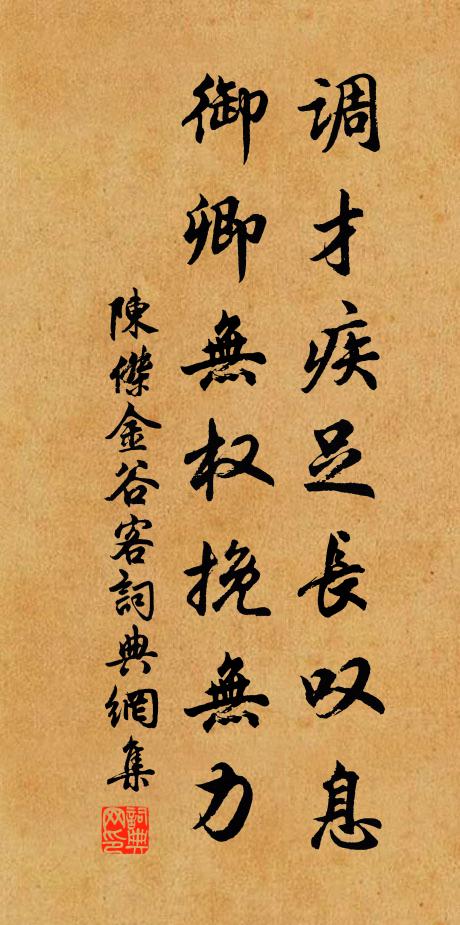 调才疾足長叹息
御卿無权挽無力
陳傑金谷客詞典網集
詞典网印